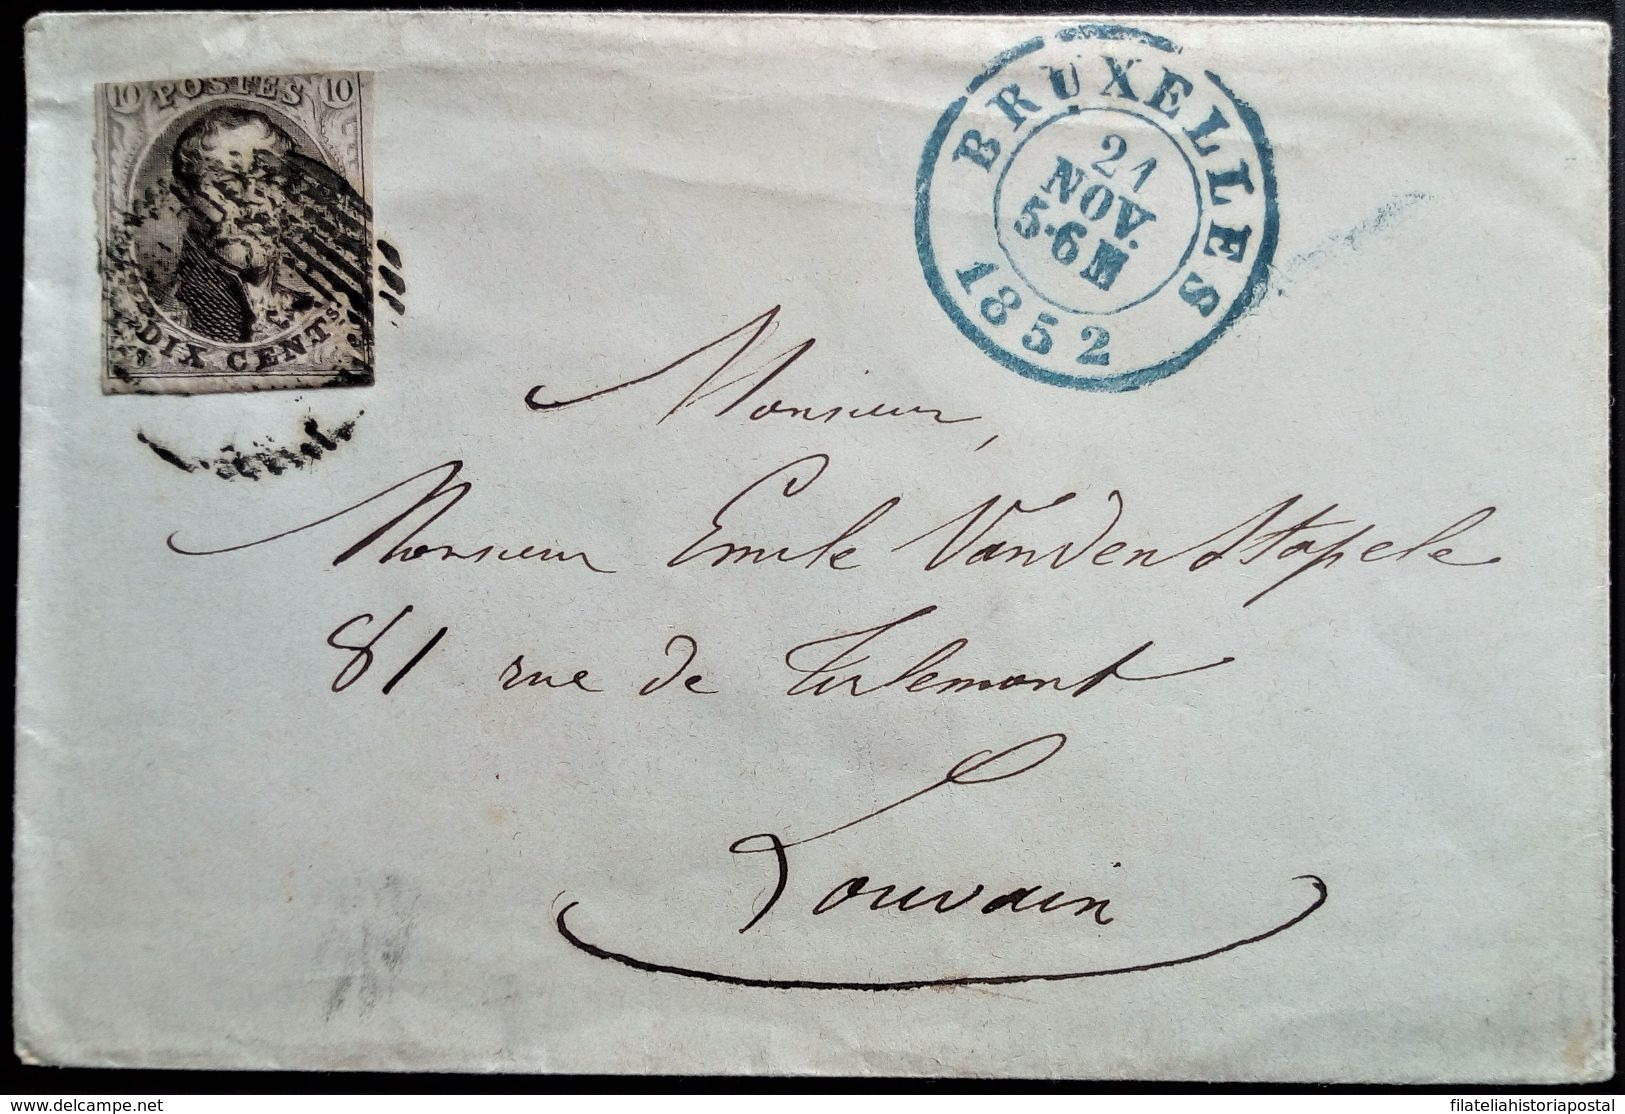 10 POSTES 10
DIX CENTS
BRUXELLES
21
NOV.
5·6 M
1852
Monsieur,
Monsieur Emile VandenStapele
81 rue de Tirlemont
Louvain
www.delcampe.net
filateliahistoriapostal